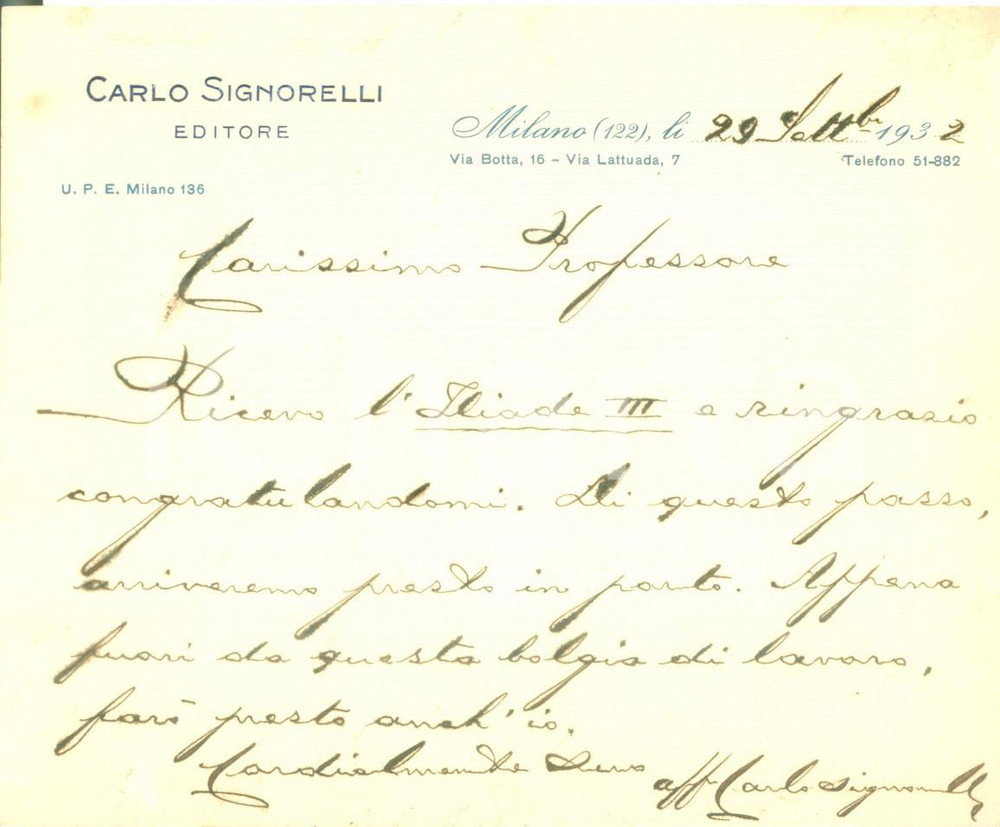 CARLO SIGNORELLI
EDITORE
Milano (122), li 29 Settbr 1932
Via Botta, 16 - Via Lattuada, 7
Telefono 51-882
U. P. E. Milano 136
Carissimo Professore
Ricevo l'Iliade III e ringrazio
congratulandomi. Di questo passo,
arriveremo presto in porto. Appena
fuori da questa bolgia di lavoro,
farò presto anch'io.
Cordialmente suo
aff. Carlo Signorelli